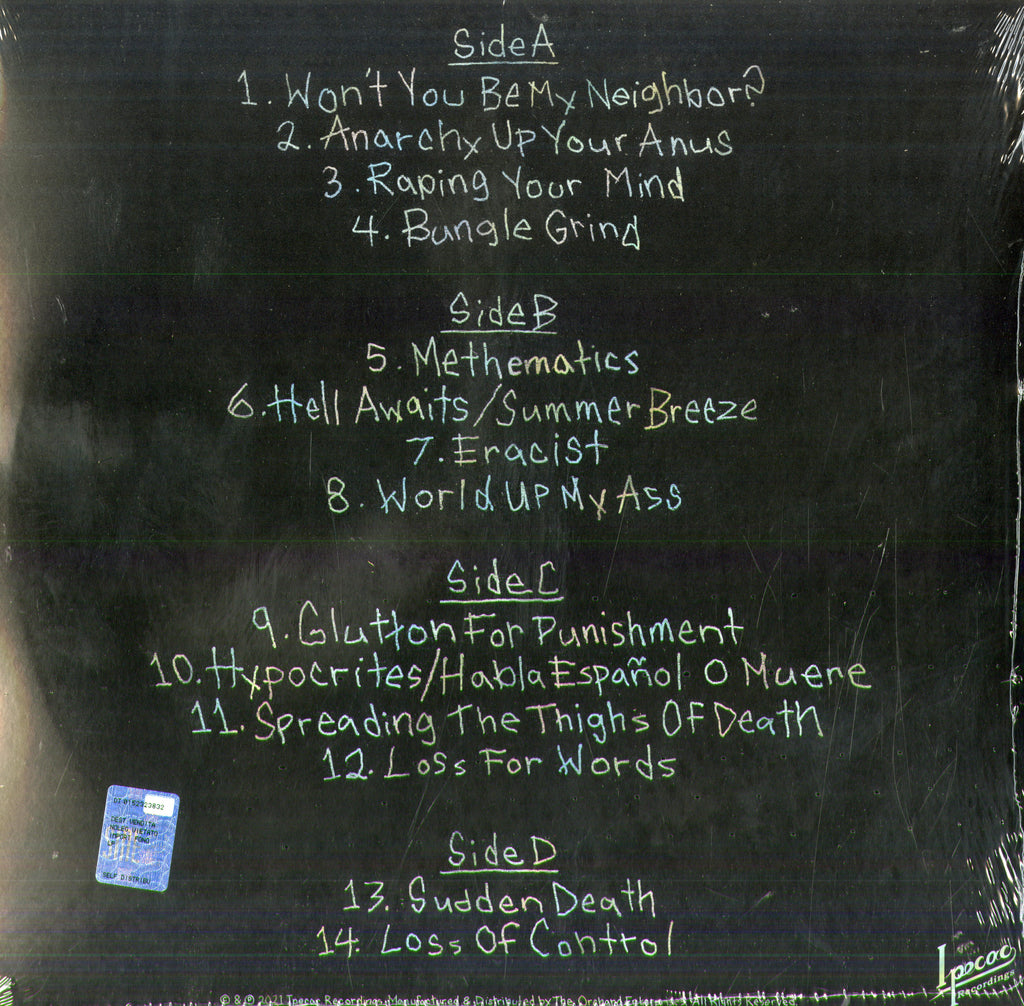 Side A
1. Won't You Be My Neighbor?
2. Anarchy Up Your Anus
3. Raping Your Mind
4. Bungle Grind
Side B
5. Methematics
6. Hell Awaits/Summer Breeze
7. Eracist
8. World Up My Ass
Side C
9. Glutton For Punishment
10. Hypocrites/Habla Español O Muere
11. Spreading The Thighs Of Death
12. Loss For Words
DEST VENDITA
NOLEG VIETATO
SELF DISTRIBU
Side D
13. Sudden Death
14. Loss Of Control
Ipecac
Recordings
© & ℗ 2021 Ipecac Recordings. Manufactured & Distributed by The Orchard All Rights Reserved.